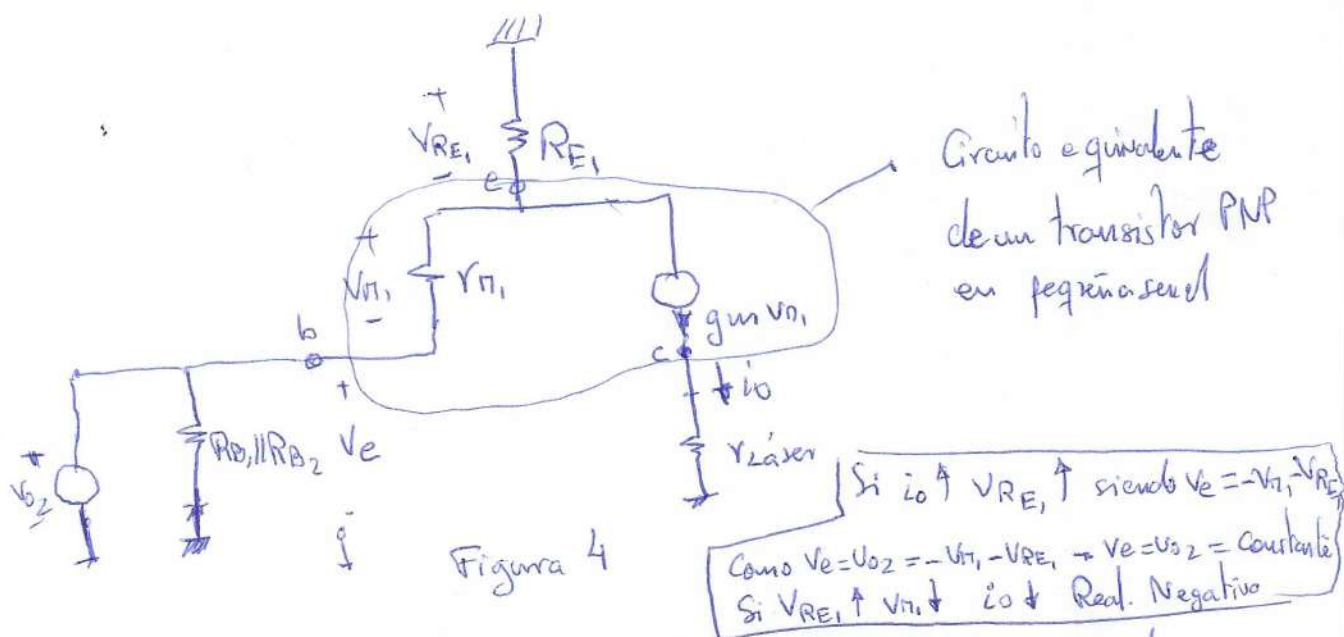 +
VRE1
-
RE1
e
Circuito equivalente
de un transistor PNP
en pequeña señal
+
Vπ1
-
rπ1
gm Vπ1
b
c
io
+
Ve
-
RB1//RB2
+
vo2
-
rLáser
Figura 4
Si io ↑ VRE1 ↑ siendo Ve = -Vπ1 - VRE1
Como Ve = Vo2 = -Vπ1 - VRE1 → Ve = Vo2 = Constante
Si VRE1 ↑ Vπ1 ↓ io ↓ Real. Negativo